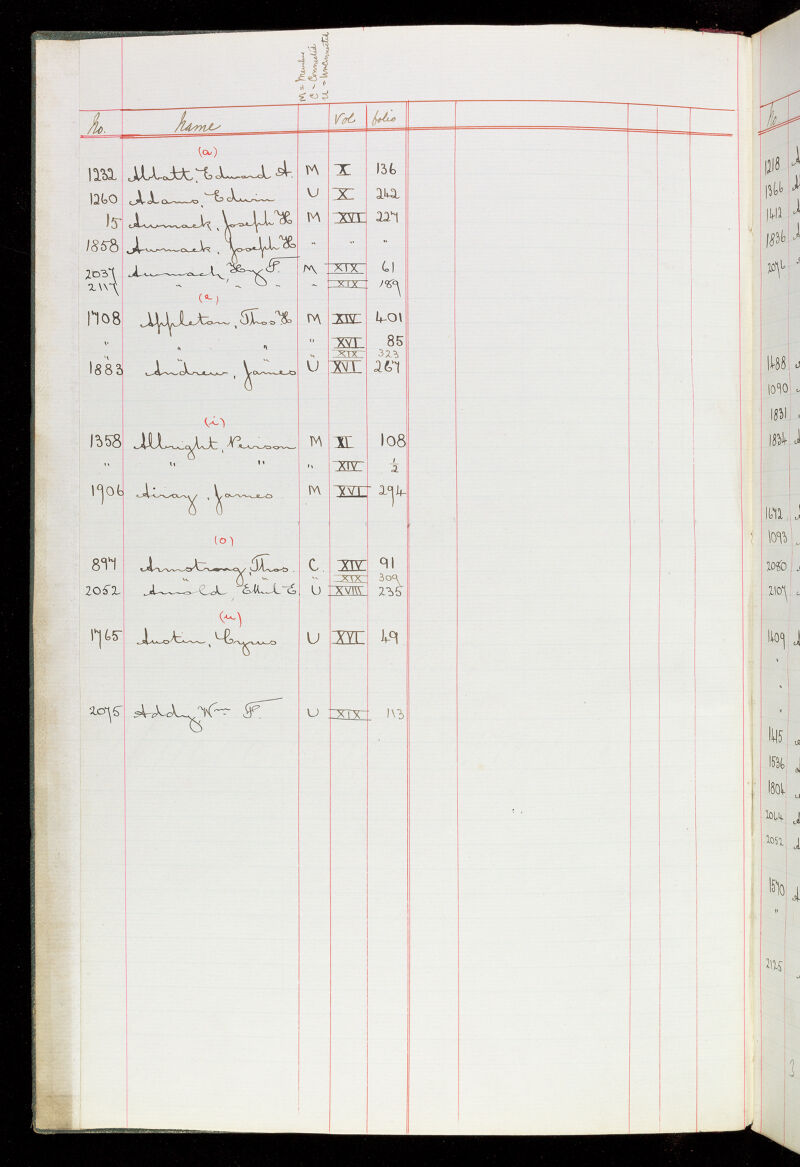 M = Member
C = Connected
U = Unconnected
No. Name Vol folio
(a)
1232 Abbatt, Edward A. M X 136
1260 Adams, Edwin U X 242
15 Awmack, Joseph H M XVI 227
1858 Awmack, Joseph H " " "
2037 Awmack, Hy F. M XIX 61
2117 " " " " XIX 189
(e)
1708 Appleton, Thos H M XIV 401
" " " " XVI 85
" " XIX 323
1883 Andrew, James U XVI 267
(i)
1358 Albright, Peirson M XI 108
" " " " " XIV ½
1906 Airay, James M XVI 294
(o)
897 Armstrong, Thos. C. XIV 91
" XIX 309
2052 Arnold, Ethel E. U XVIII 235
(u)
1765 Austin, Cyrus U XVI 49
2075 Addy Wm F. U XIX 113
No
1218
1366
1412
1836
2076
1488
1090
1831
1834
1672
1093
2080
2107
1409
"
"
"
1415
1536
1804
2064
2052
1570
"
2125
3